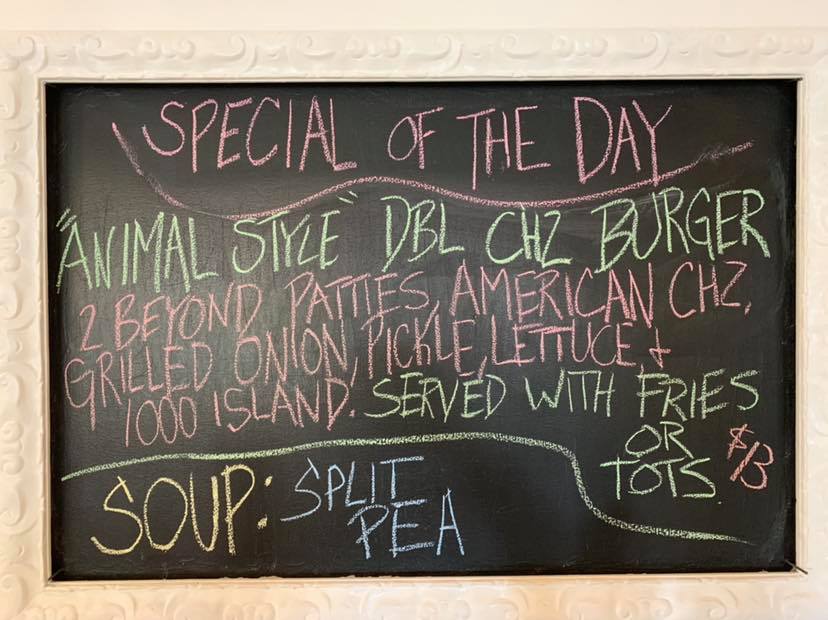 SPECIAL OF THE DAY
"ANIMAL STYLE" DBL CHZ BURGER
2 BEYOND PATTIES, AMERICAN CHZ,
GRILLED ONION, PICKLE, LETTUCE, +
1000 ISLAND. SERVED WITH FRIES
OR
TOTS.
$13
SOUP: SPLIT
PEA